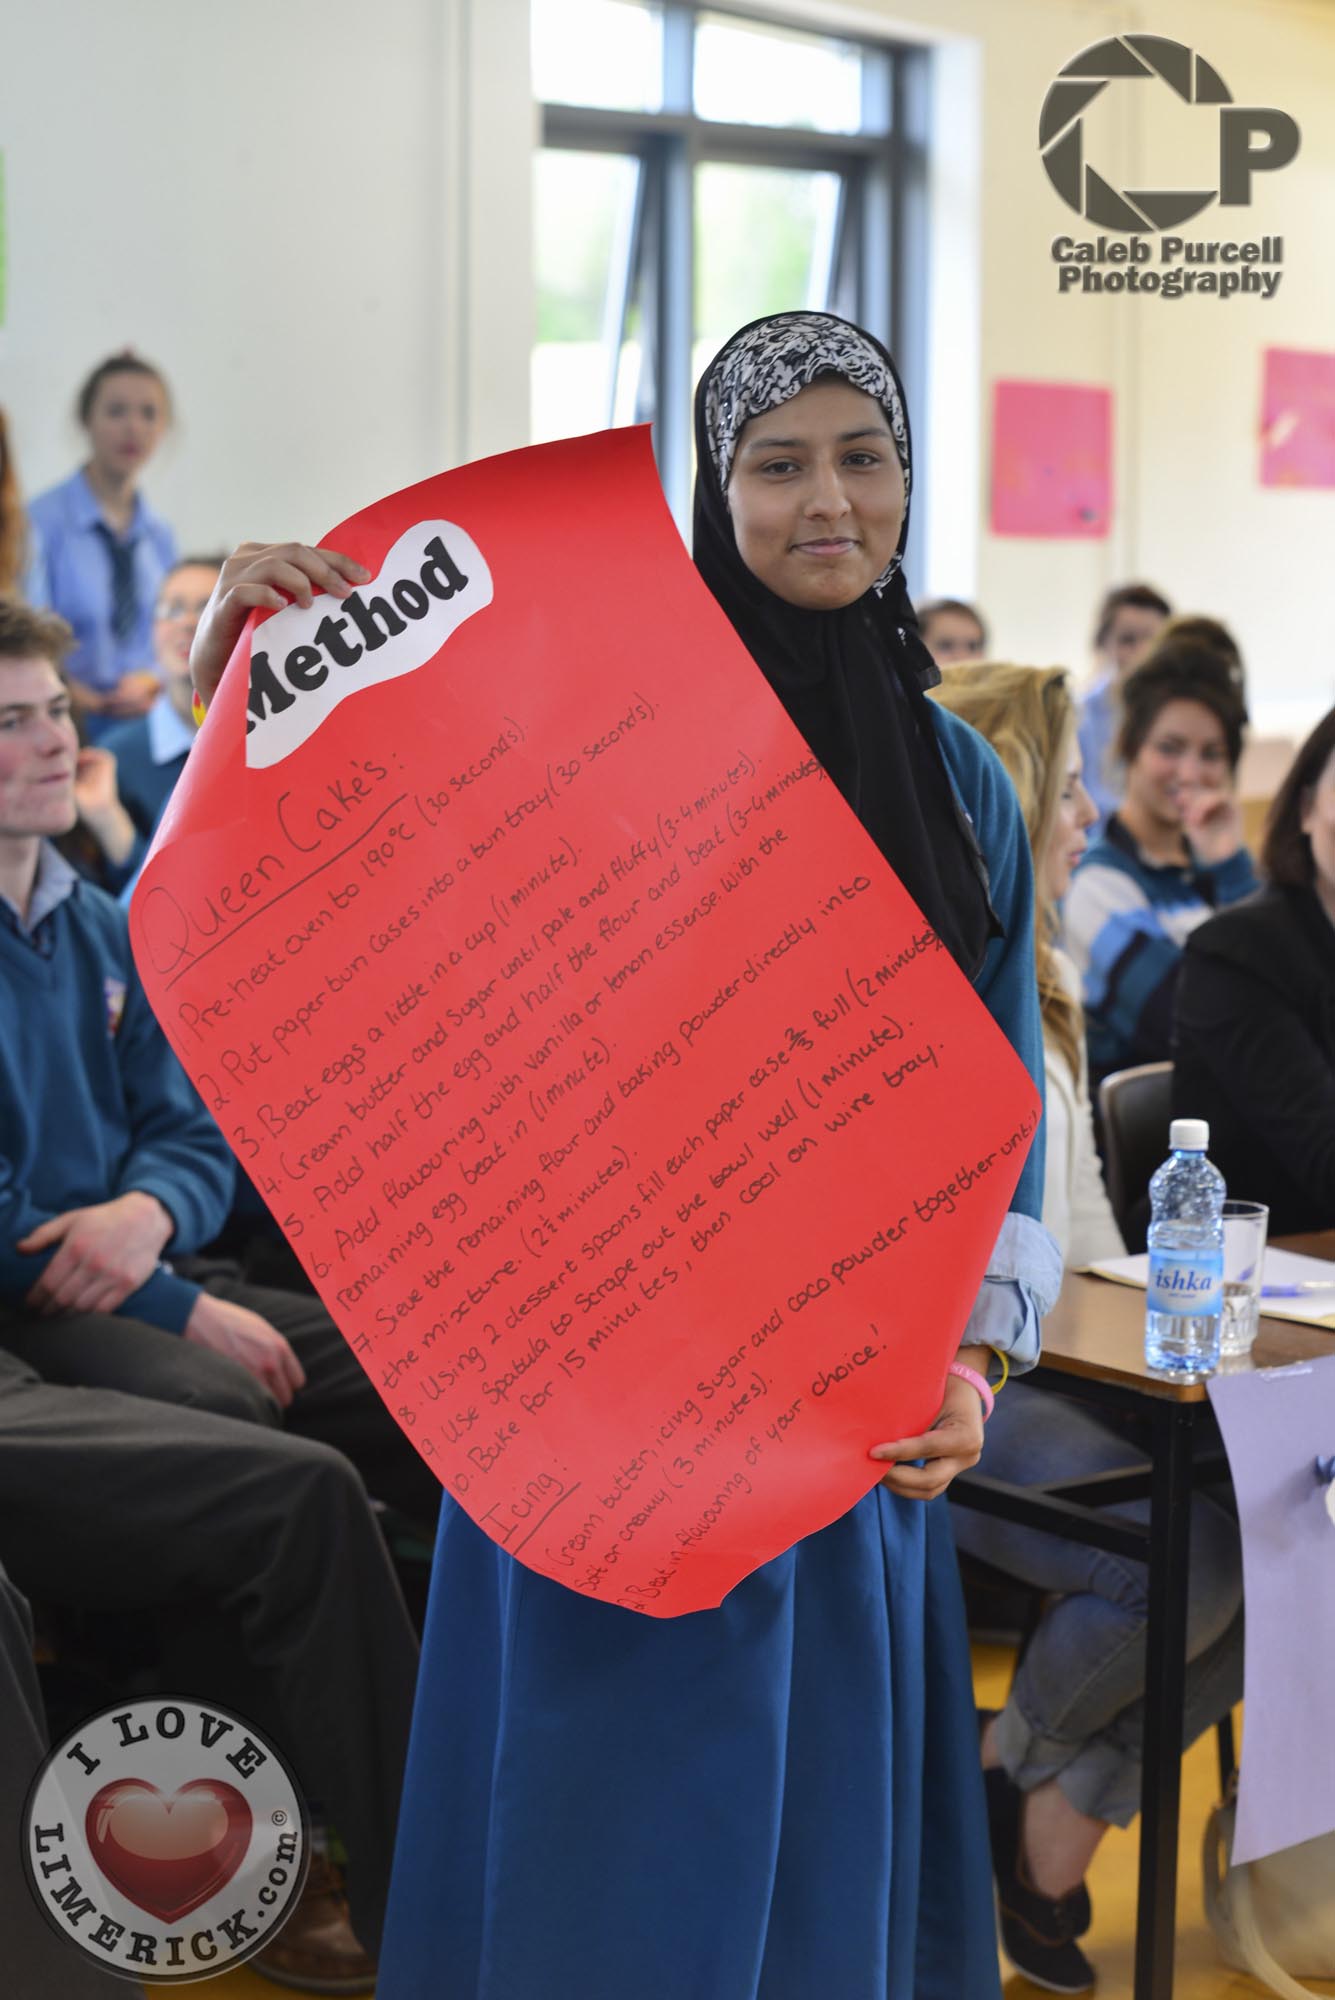 CP
Caleb Purcell
Photography
Method
Queen Cake's:
1. Pre-heat oven to 190°C (30 seconds).
2. Put paper bun cases into a bun tray (30 seconds).
3. Beat eggs a little in a cup (1 minute).
4. Cream butter and sugar until pale and fluffy (3-4 minutes).
5. Add half the egg and half the flour and beat (3-4 minutes).
6. Add flavouring with vanilla or lemon essense. With the
remaining egg beat in (1 minute).
7. Sieve the remaining flour and baking powder directly into
the mixture. (2½ minutes).
8. Using 2 dessert spoons fill each paper case ⅔ full (2 minutes).
9. Use spatula to scrape out the bowl well (1 minute).
10. Bake for 15 minutes, then cool on wire tray.
Icing:
1. Cream butter, icing sugar and coco powder together until
soft or creamy (3 minutes).
2. Beat in flavouring of your choice!
ishka
I LOVE
LIMERICK.com©